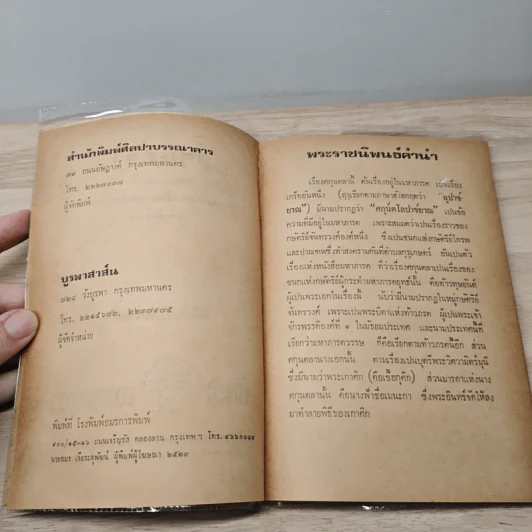 สำนักพิมพ์ศิลปาบรรณาคาร
๓๑ ถนนอัษฎางค์ กรุงเทพมหานคร
โทร. ๒๒๒๗๐๓๗
ผู้จัดพิมพ์
บูรพาสาส์น
๗๒๔ วังบูรพา กรุงเทพมหานคร
โทร. ๒๒๑๕๖๗๒, ๒๒๓๗๙๗๕
ผู้จัดจำหน่าย
พิมพ์ที่ โรงพิมพ์อมรการพิมพ์
๙๐๐/๑๕-๑๖ ถนนเจริญรัถ คลองสาน กรุงเทพ ฯ โทร.
ผู้พิมพ์ผู้โฆษณา ๒๕๒๓
พระราชนิพนธ์คำนำ
เรื่องศกุนตลานี้ ต้นเรื่องอยู่ในมหาภารต เป็นเรื่อง
เกร็ดอันหนึ่ง (ฤๅเรียกตามภาษาสังสกฤตว่า "อุปาข์
ยาณ") มีนามปรากฏว่า "ศกุนตโลปาข์ยาณ" เป็นข้อ
ความที่มีอยู่ในมหาภารต เพราะสมมตว่าเป็นเรื่องราวของ
กษัตริย์จันทรวงศ์องค์หนึ่ง ซึ่งเป็นชนกแห่งกษัตริย์โกรพ
และปาณฑพซึ่งทำสงครามกันที่ตำบลกุรุเกษตร์ อันเป็นตัว
เรื่องแห่งหนังสือมหาภารต ที่ว่าเรื่องศกุนตลาเป็นเรื่องของ
ชนกแห่งกษัตริย์ผู้กระทำมหาภารตยุทธ์นั้น คือท้าวทุษยันต์
ผู้เป็นพระเอกในเรื่องนี้ นับว่ามีนามปรากฏในหมู่กษัตริย์
จันทรวงศ์ เพราะเป็นพระบิดาแห่งท้าวภรต ผู้เป็นพระเจ้า
จักรพรรดิองค์ที่ ๑ ในมัธยมประเทศ และนามประเทศนี้ที่
เรียกว่ามหาภารตวรรษ ก็คือเรียกตามท้าวภรตนี้อีก ส่วน
ศกุนตลานางเอกนั้น ตามเรื่องเป็นบุตรีพระวิศวามิตร์มุนี
ซึ่งมีนามว่าพระเกาศิก (คือเชื้อกุศิก) ส่วนมารดาแห่งนาง
ศกุนตลานั้น คือนางฟ้าชื่อเมนะกา ซึ่งพระอินทร์จัดให้ลง
มาทำลายพิธีของเกาศิก